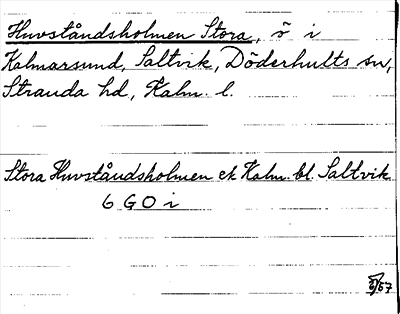 Huvståndsholmen Stora, ö i
Kalmarsund, Saltvik, Döderhults sn,
Stranda hd, Kalm. l.
Stora Huvståndsholmen ek. Kalm. bl. Saltvik
6 G O i
57